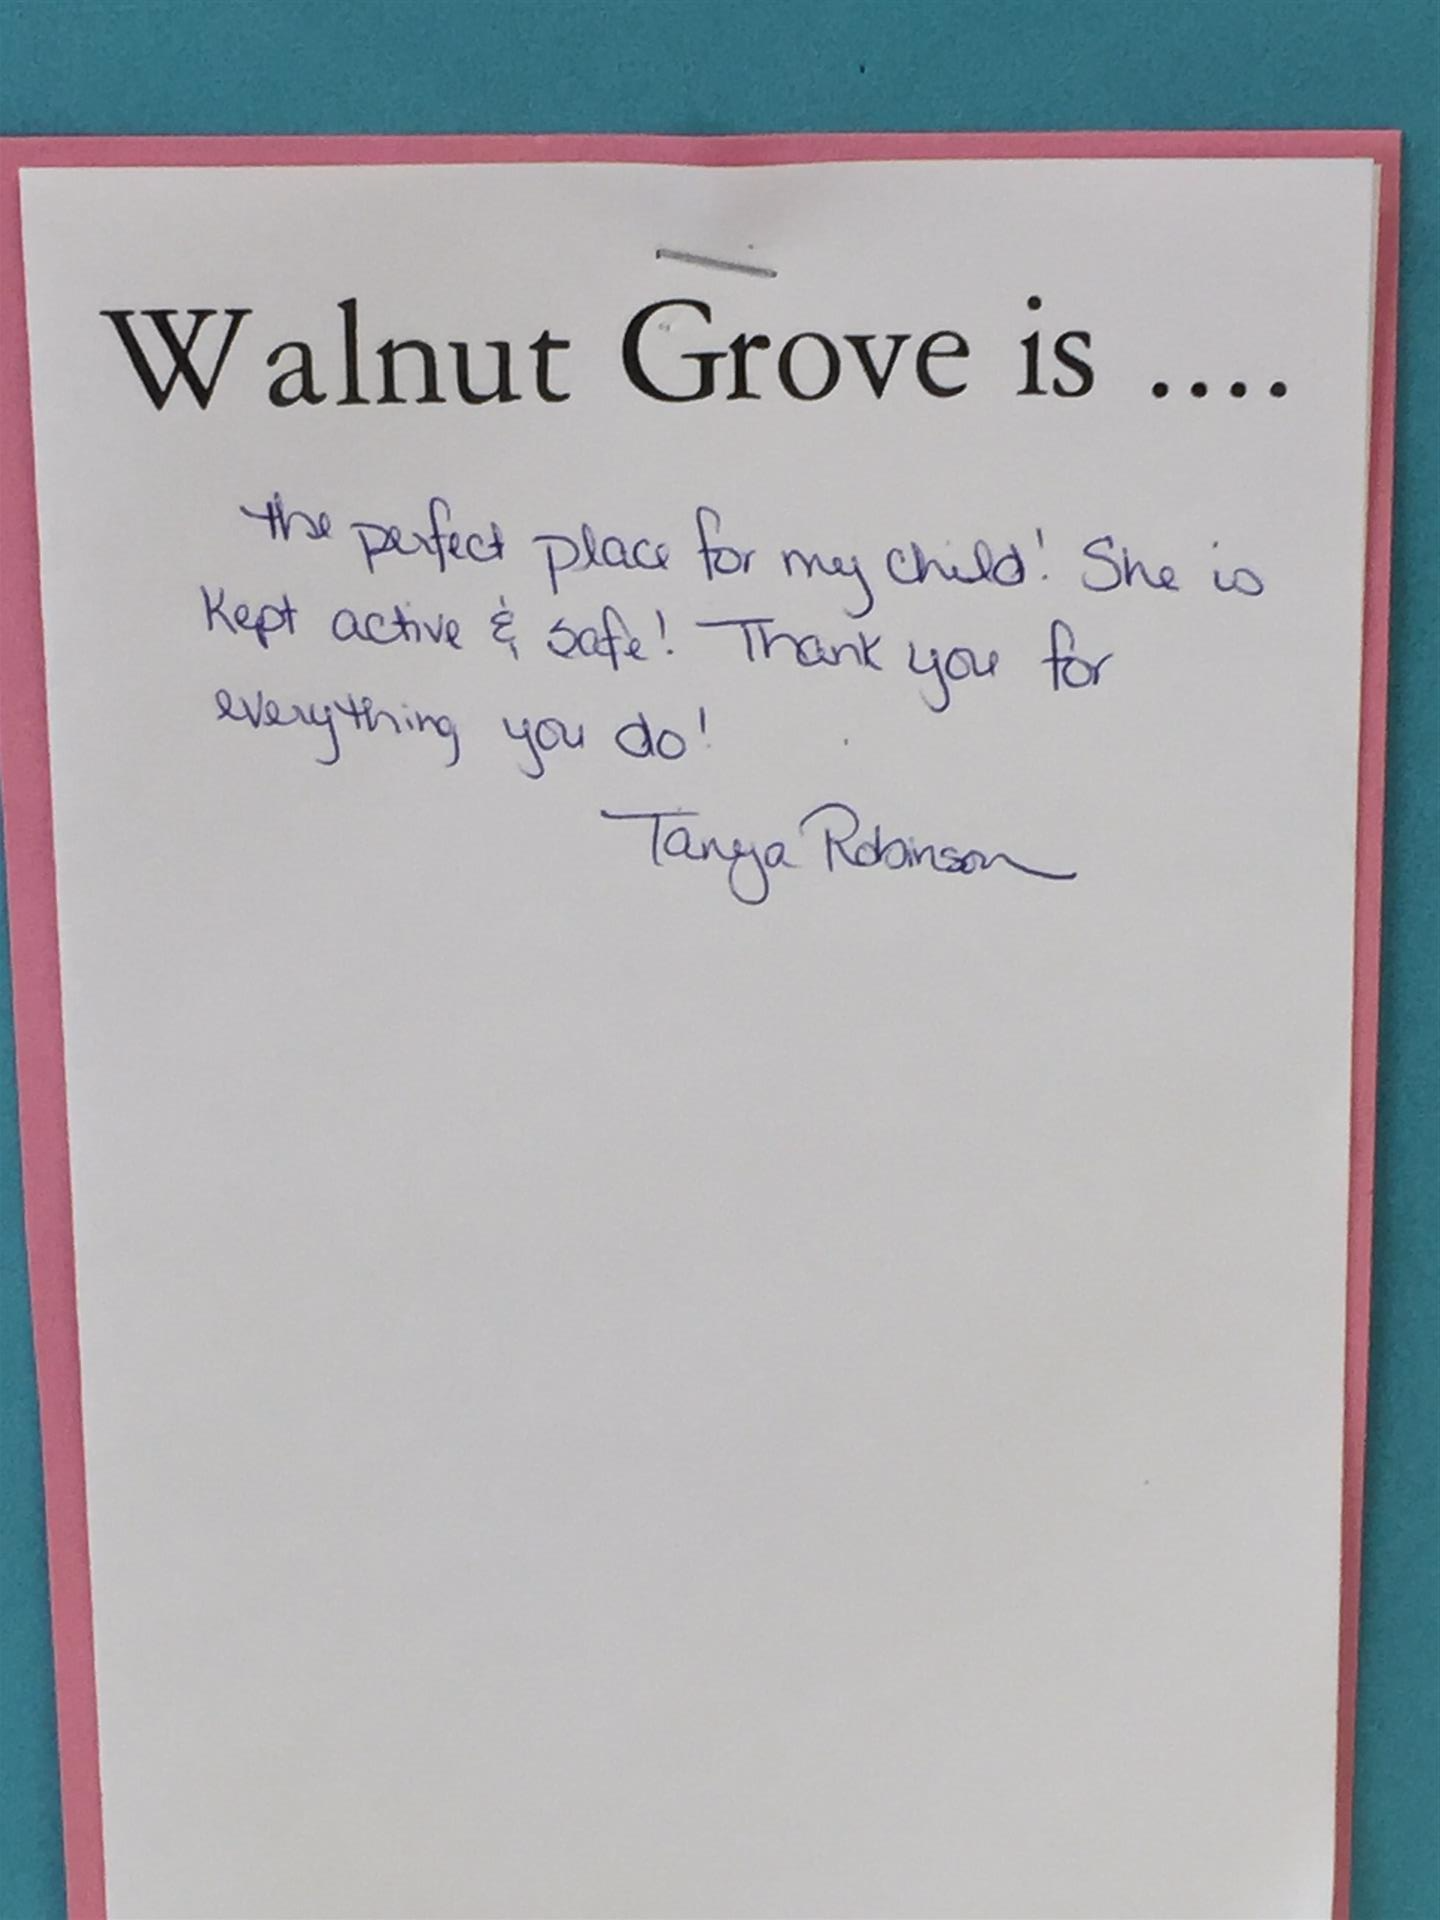 Walnut Grove is ....
the perfect place for my child! She is
Kept active & safe! Thank you for
everything you do!
Tanya Robinson